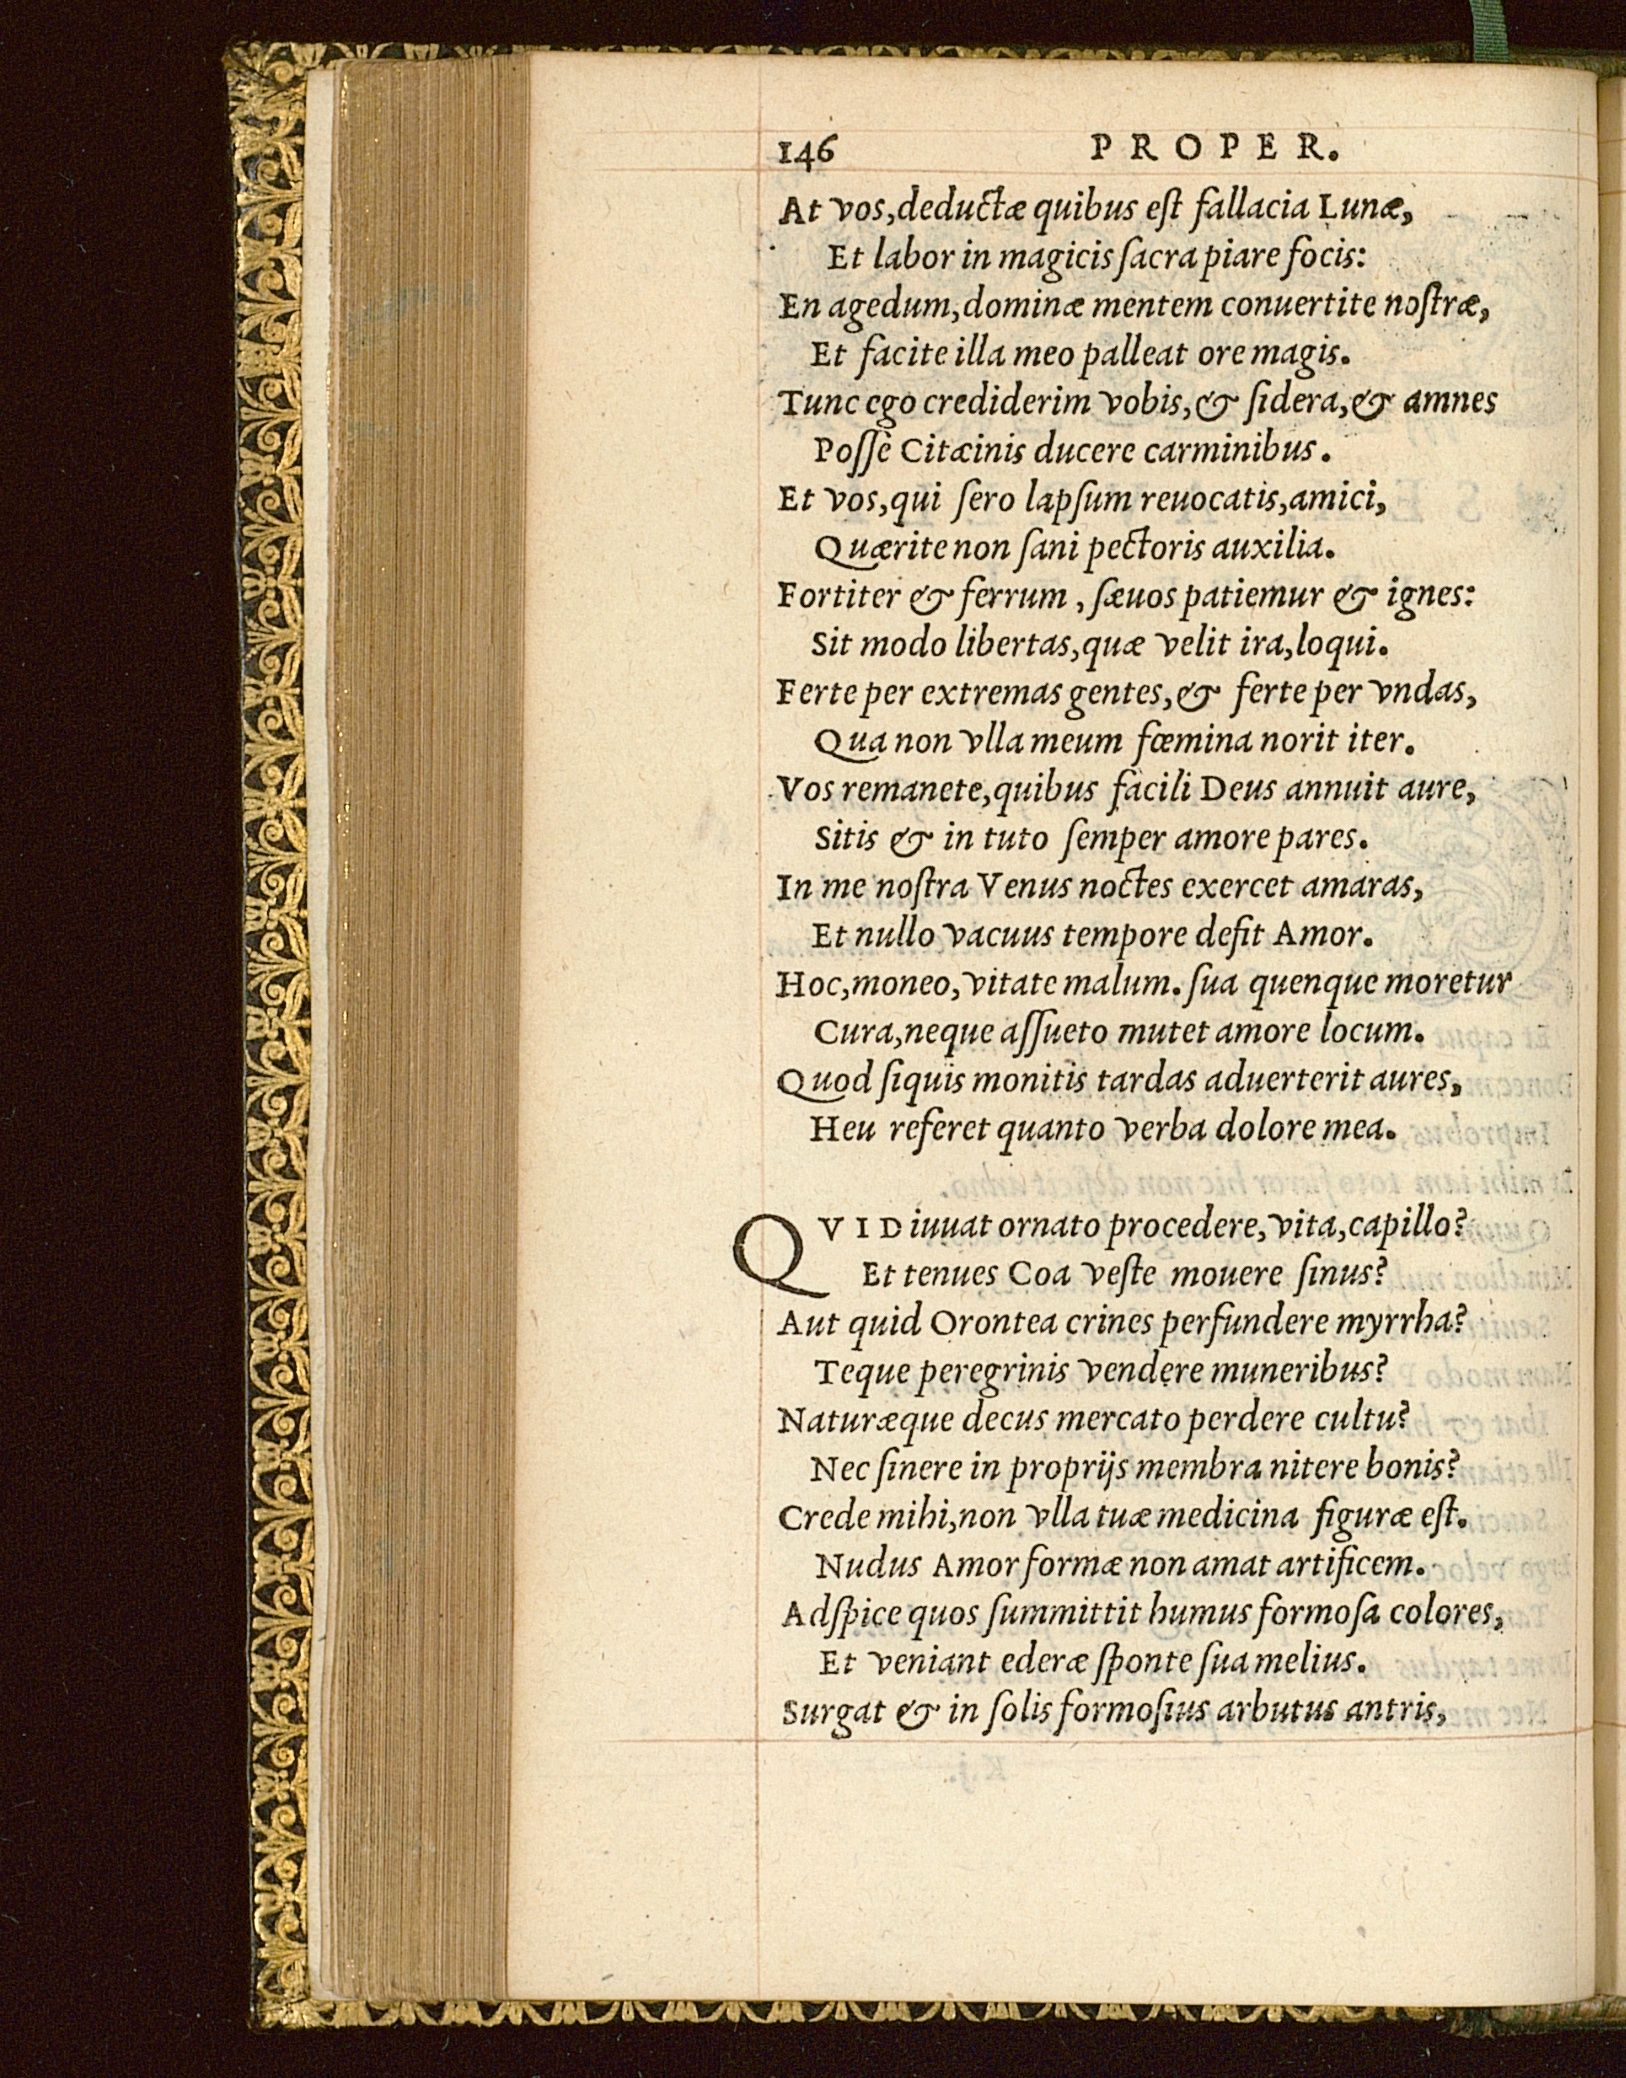 146 PROPER.
At vos,deductæ quibus eſt fallacia Lunæ,
Et labor in magicis ſacra piare focis:
En agedum,dominæ mentem conuertite noſtræ,
Et facite illa meo palleat ore magis.
Tunc ego crediderim vobis,& ſidera,& amnes
Poſſe Citæinis ducere carminibus.
Et vos,qui ſero lapſum reuocatis,amici,
Quærite non ſani pectoris auxilia.
Fortiter & ferrum, ſæuos patiemur & ignes:
Sit modo libertas,quæ velit ira,loqui.
Ferte per extremas gentes,& ferte per vndas,
Qua non vlla meum fœmina norit iter.
Vos remanete,quibus facili Deus annuit aure,
Sitis & in tuto ſemper amore pares.
In me noſtra Venus noctes exercet amaras,
Et nullo vacuus tempore defit Amor.
Hoc,moneo,vitate malum. ſua quenque moretur
Cura,neque aſſueto mutet amore locum.
Quod ſiquis monitis tardas aduerterit aures,
Heu referet quanto verba dolore mea.
QVID iuuat ornato procedere,vita,capillo?
Et tenues Coa veſte mouere ſinus?
Aut quid Orontea crines perfundere myrrha?
Teque peregrinis vendere muneribus?
Naturæque decus mercato perdere cultu?
Nec ſinere in proprijs membra nitere bonis?
Crede mihi,non vlla tuæ medicina figuræ eſt.
Nudus Amor formæ non amat artificem.
Adſpice quos ſummittit humus formoſa colores,
Et veniant ederæ ſponte ſua melius.
Surgat & in ſolis formoſius arbutus antris,